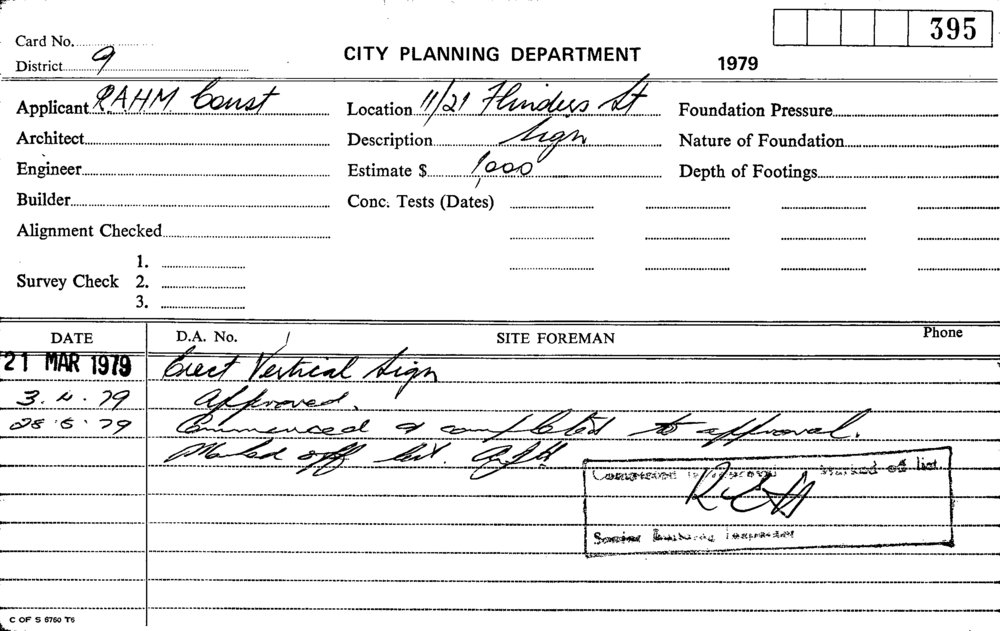 395
Card No.
CITY PLANNING DEPARTMENT 1979
District 9
Applicant RAHM Const Location 11/21 Flinders St Foundation Pressure
Architect Description Sign Nature of Foundation
Engineer Estimate $ 1,000 Depth of Footings
Builder Conc. Tests (Dates)
Alignment Checked
1.
Survey Check 2.
3.
DATE D.A. No. SITE FOREMAN Phone
21 MAR 1979 Erect Vertical Sign
3.4.79 Approved.
28.5.79 Commenced & completed to approval.
Marked off list.
Completed to approval Marked off list
Senior Building Inspector
C OF S 6760 T6